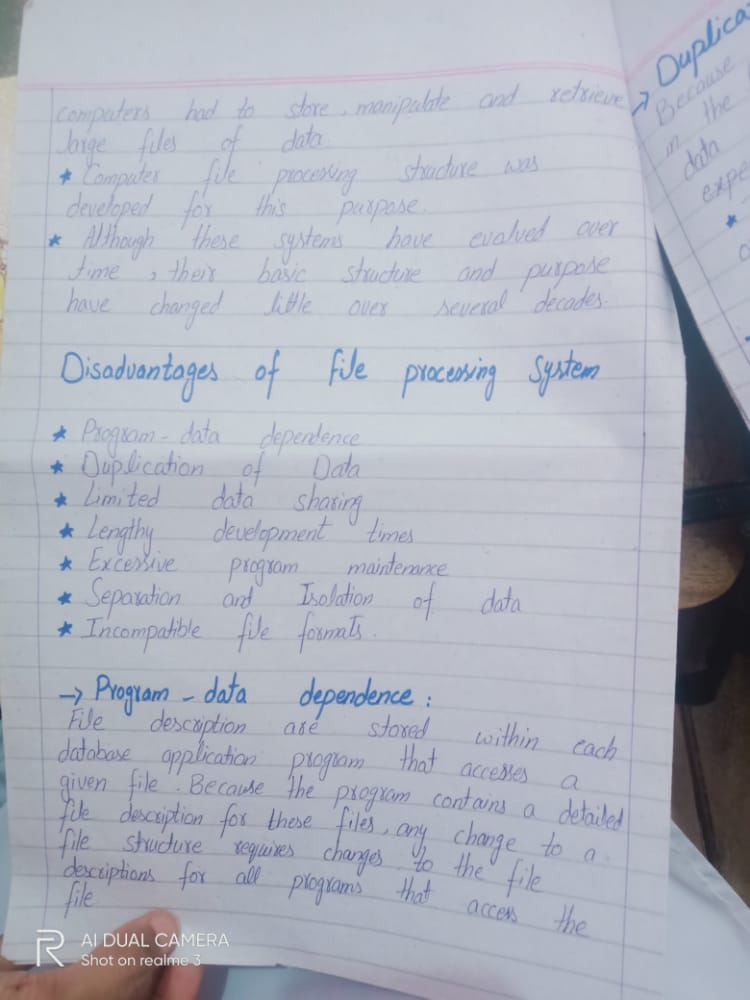 computers had to store, manipulate and retrieve
large files of data.
* Computer file processing structure was
developed for this purpose.
* Although these systems have evolved over
time, their basic structure and purpose
have changed little over several decades.
Disadvantages of file processing System
* Program-data dependence
* Duplication of Data
* Limited data sharing
* Lengthy development times
* Excessive program maintenance
* Separation and Isolation of data
* Incompatible file formats.
→ Program-data dependence:
File description are stored within each
database application program that accesses a
given file. Because the program contains a detailed
file description for these files, any change to a
file structure requires changes to the file
descriptions for all programs that access the
file
→ Duplica
Because
in the
data
expe
*
R AI DUAL CAMERA
Shot on realme 3